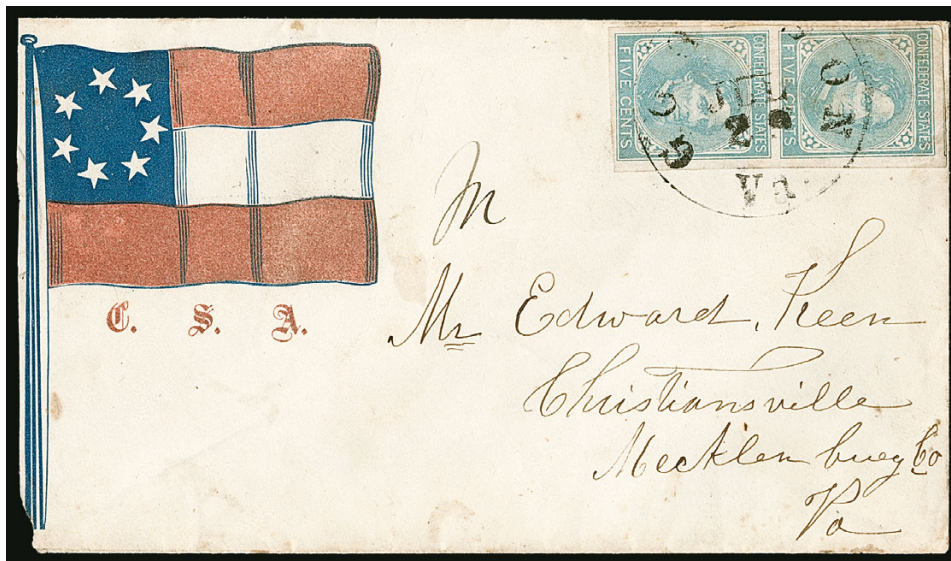 CONFEDERATE STATES
FIVE CENTS
CONFEDERATE STATES
FIVE CENTS
JUL
Va
C. S. A.
M
Mr Edward, Keen
Christiansville
Mecklenburg Co
Va